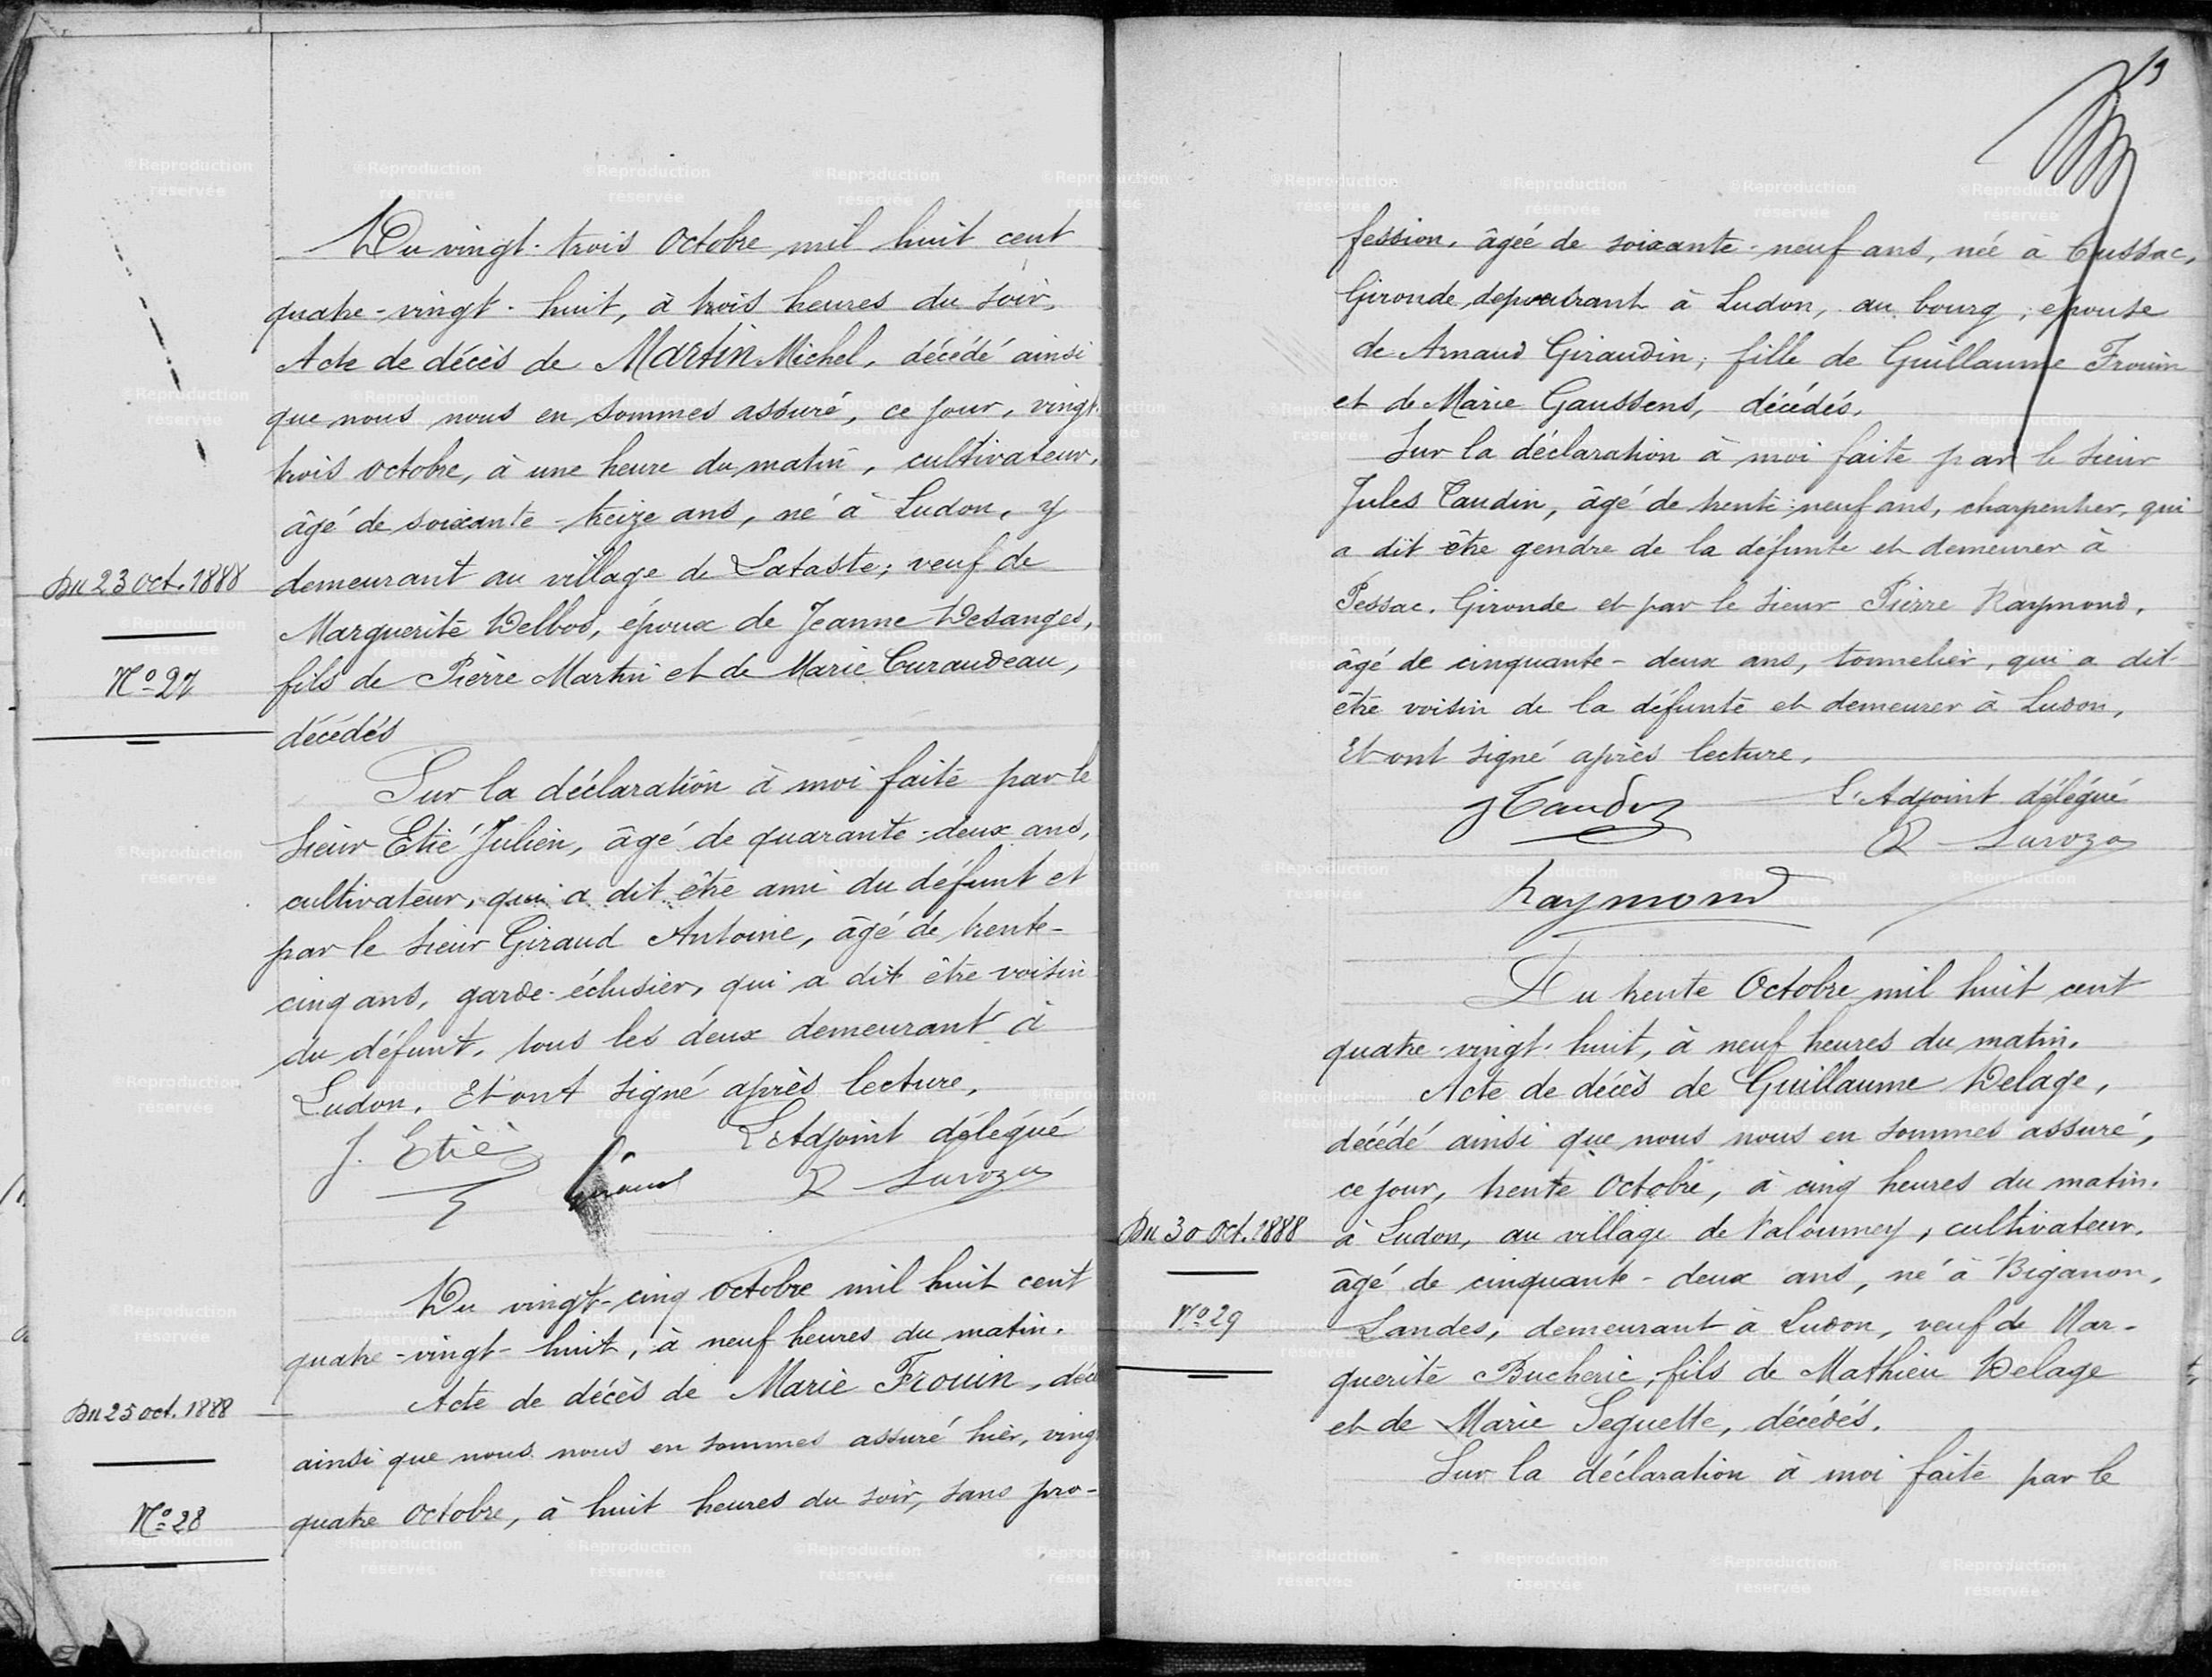 Du vingt-trois Octobre mil huit cent
quatre-vingt-huit, à trois heures du soir,
Acte de décès de Martin Michel, décédé ainsi
que nous nous en sommes assuré, ce jour, vingt
trois octobre, à une heure du matin, cultivateur,
âgé de soixante-treize ans, né à Ludon, y
Du 23 oct. 1888
demeurant au village de Lataste; veuf de
Marguerite Delbos, époux de Jeanne Desanges,
N° 27
fils de Pierre Martin et de Marie Curaudeau,
décédés
Sur la déclaration à moi faite par le
sieur Etié Julien, âgé de quarante-deux ans,
cultivateur, qui a dit être ami du défunt et
par le sieur Giraud Antoine, âgé de trente-
cinq ans, garde-éclusier, qui a dit être voisin
du défunt, tous les deux demeurant à
Ludon. Et ont signé après lecture,
J. Etié
Giraud
L'Adjoint délégué
Du vingt-cinq octobre mil huit cent
quatre-vingt-huit, à neuf heures du matin.
Du 25 oct. 1888
Acte de décès de Marie Frouin, décé
ainsi que nous nous en sommes assuré hier, vingt
N° 28
quatre octobre, à huit heures du soir, sans pro-
fession, âgée de soixante-neuf ans, née à Cussac,
Gironde, à Ludon, au bourg; épouse
de Arnaud Giraudin; fille de Guillaume Frouin
et de Marie Gaussens, décédés.
Sur la déclaration à moi faite par le sieur
Jules Taudin, âgé de trente-neuf ans, charpentier, qui
a dit être gendre de la défunte et demeurer à
Pessac. Gironde et par le sieur Pierre Raymond,
âgé de cinquante-deux ans, tonnelier, qui a dit
être voisin de la défunte et demeurer à Ludon,
Et ont signé après lecture,
L'Adjoint délégué
Raymond
Du trente Octobre mil huit cent
quatre-vingt-huit, à neuf heures du matin.
Acte de décès de Guillaume Delage,
décédé ainsi que nous nous en sommes assuré,
ce jour, trente Octobre, à cinq heures du matin.
Du 30 Oct. 1888
à Ludon, au village de Paloumey, cultivateur.
âgé de cinquante-deux ans, né à Biganon,
N° 29
Landes, demeurant à Ludon, veuf de Mar-
guerite Bucherie, fils de Mathieu Delage
et de Marie Seguette, décédés.
Sur la déclaration à moi faite par le
©Reproduction
réservée